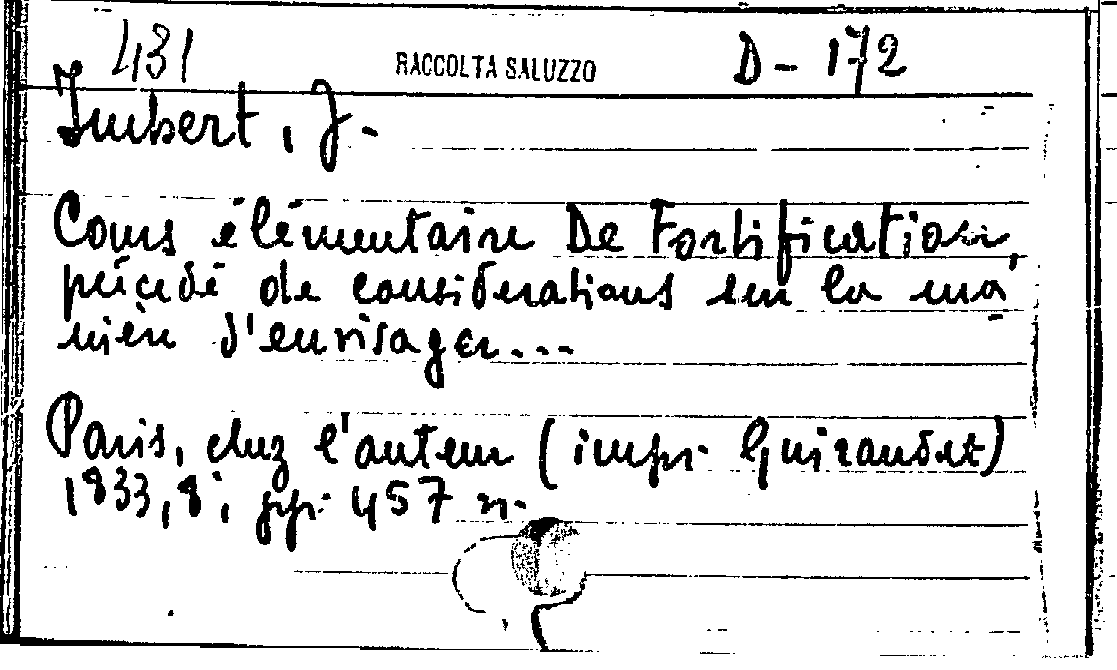 431 RACCOLTA SALUZZO D-172
Imbert, J.
Cours élémentaire De Fortification,
précédé de considerations sur la ma
nière d'envisager...
Paris, chez l'auteur (impr. Guiraudet)
1833, 8°, pp. 457 n.